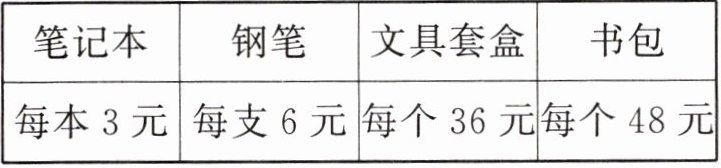 笔记本 钢笔 文具套盒 书包
每本 3 元 每支 6 元 每个 36 元 每个 48 元